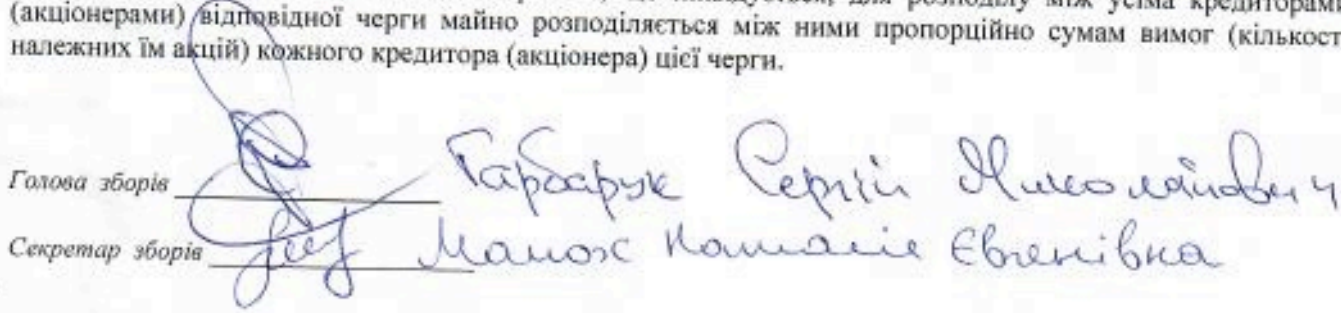 (акціонерами) відповідної черги майно розподіляється між ними пропорційно сумам вимог (кількост
належних їм акцій) кожного кредитора (акціонера) цієї черги.
Голова зборів Гарбарук Сергій Миколайович
Секретар зборів Наталія Євгенівна